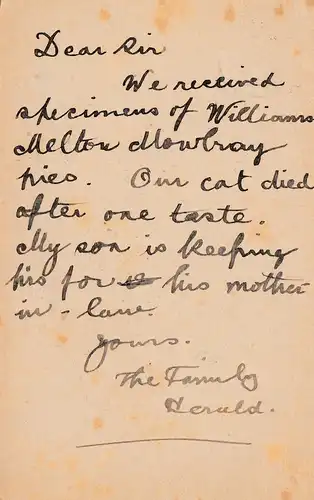 Dear Sir
We received
specimens of Williams
Melton Mowbray
pies. Our cat died
after one taste.
My son is keeping
his for his mother-
in-law.
yours.
The Family
Herald.